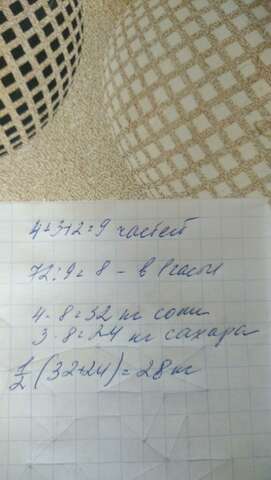 4+3+2=9 частей
72:9=8 - в 1 части
4·8=32 кг соли
3·8=24 кг сахара
1/2 (32+24)=28 кг